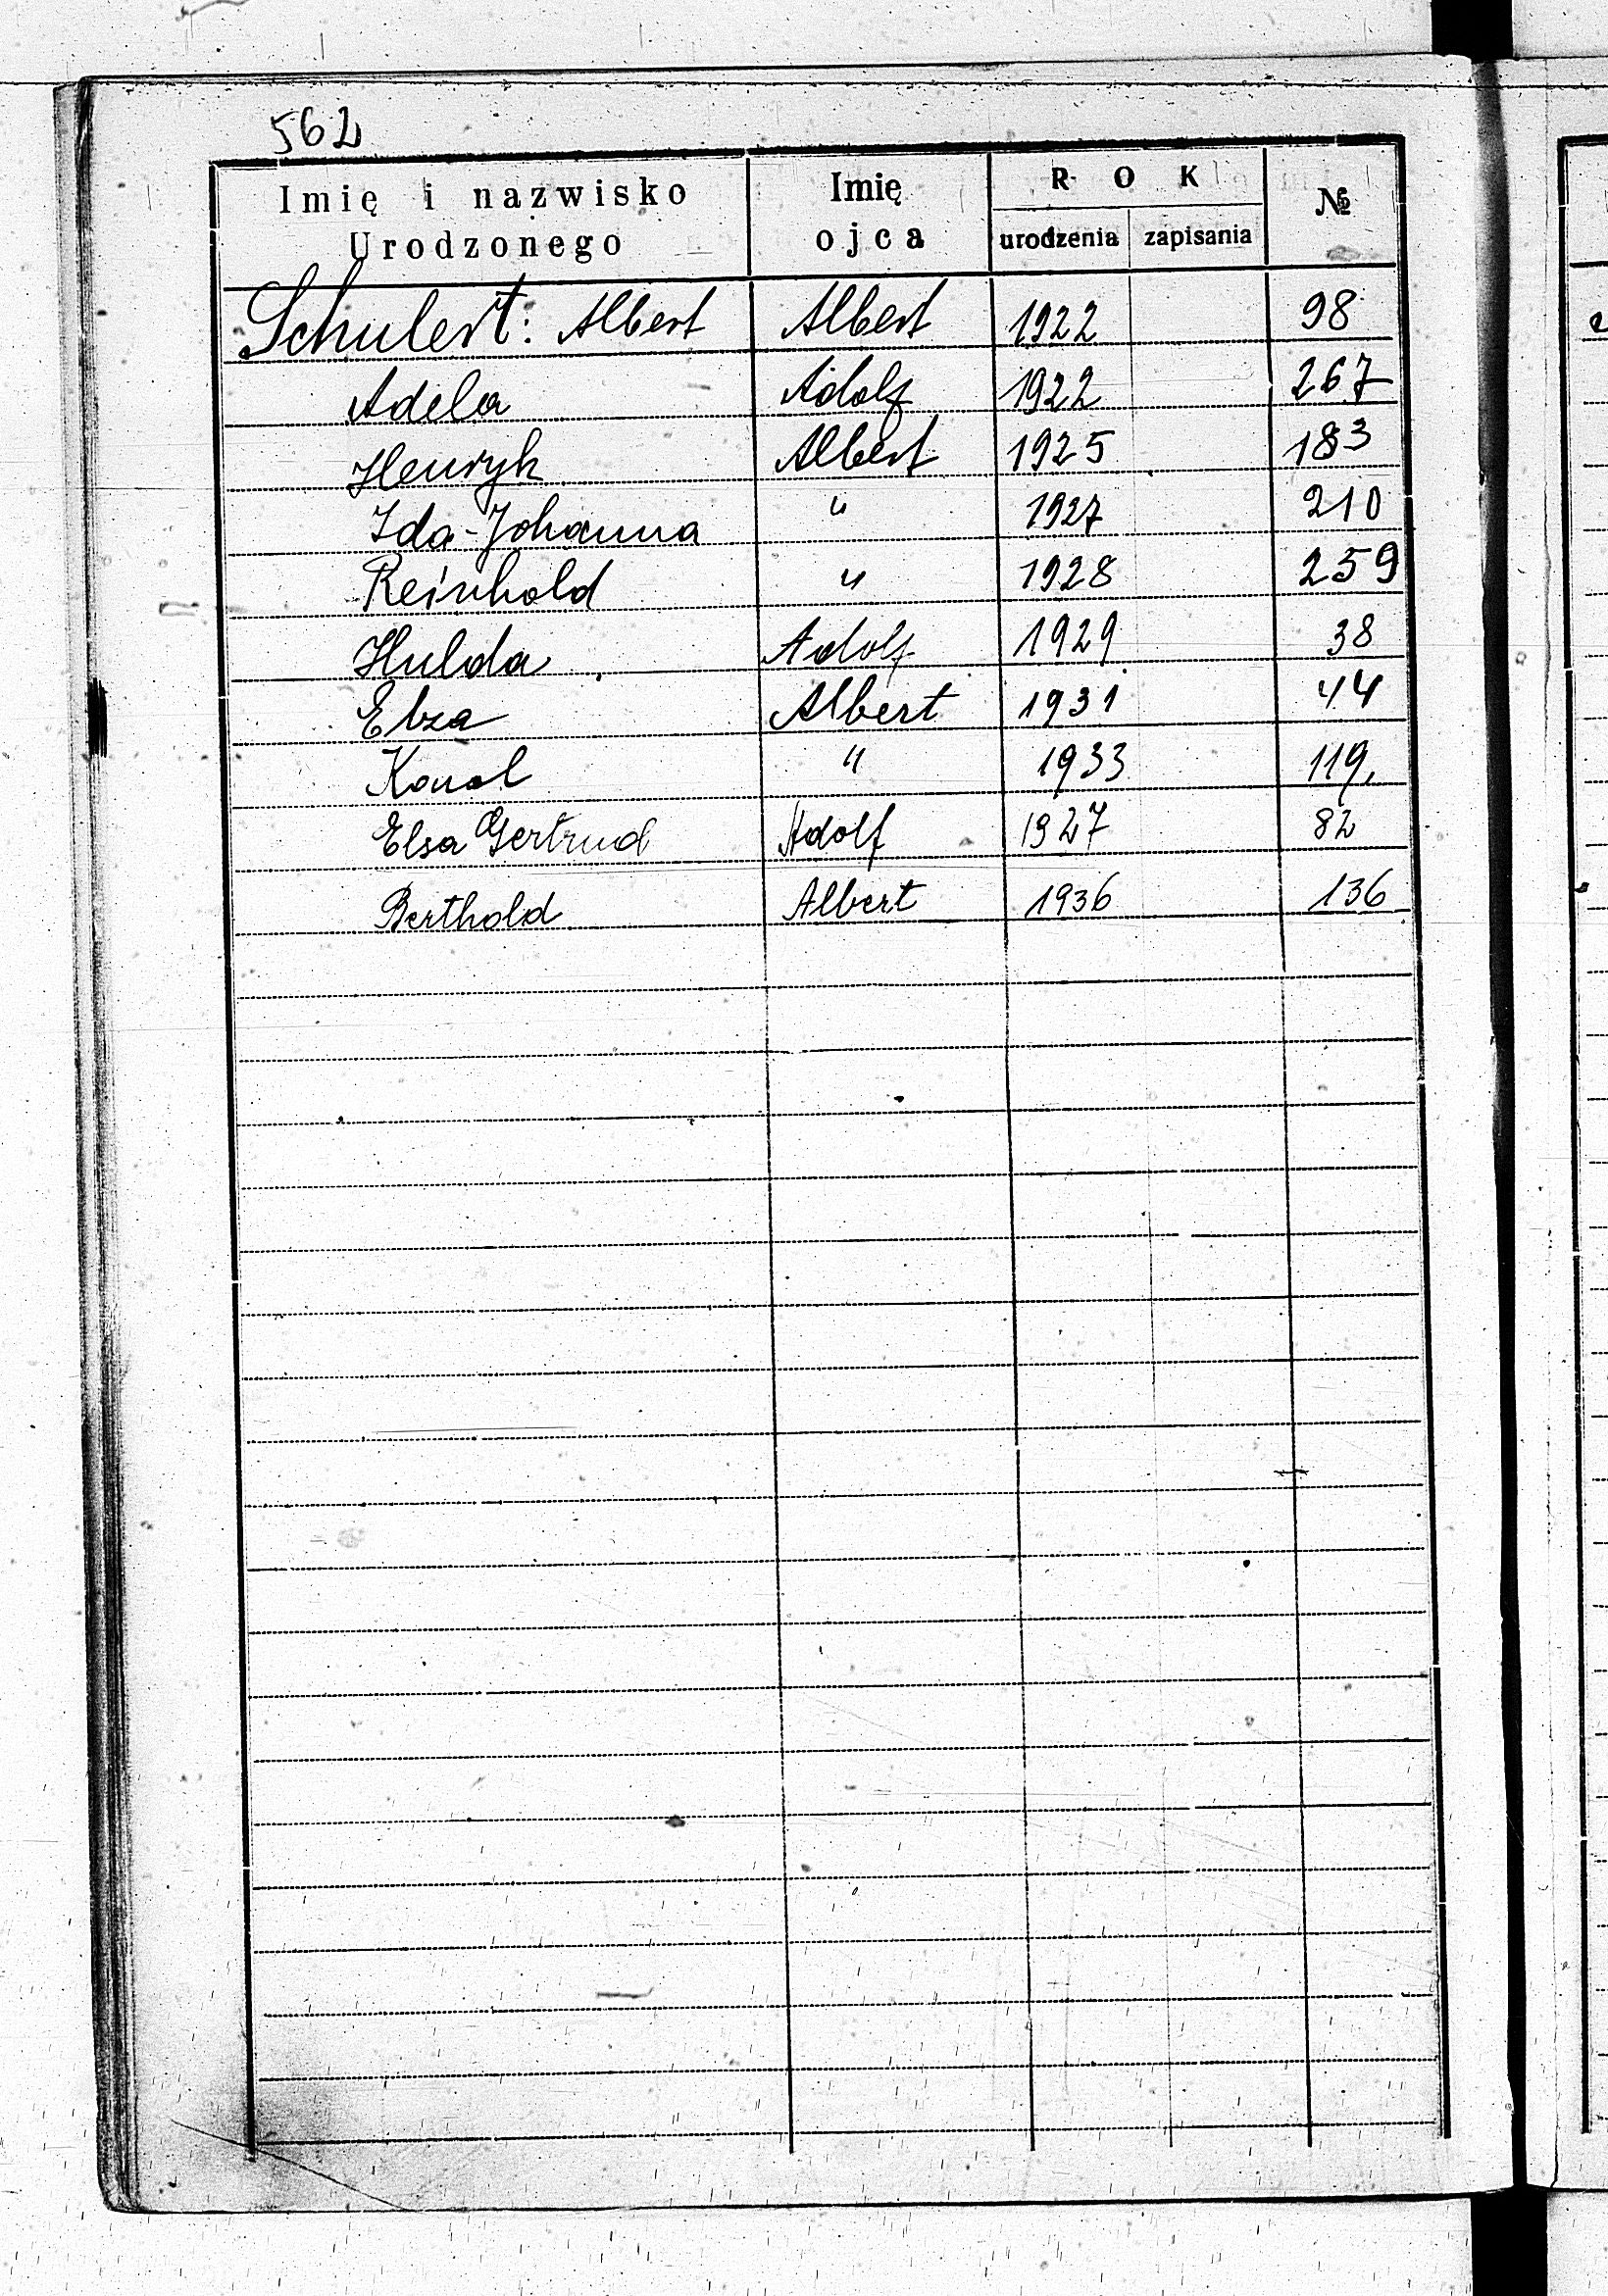 562
Imię i nazwisko Urodzonego | Imię ojca | ROK urodzenia | zapisania | №
Schulert: Albert | Albert | 1922 | | 98
Adela | Adolf | 1922 | | 267
Henryk | Albert | 1925 | | 183
Ida-Johanna | " | 1927 | | 210
Reinhold | " | 1928 | | 259
Hulda | Adolf | 1929 | | 38
Elza | Albert | 1931 | | 44
Karol | " | 1933 | | 119,
Elsa Gertrud | Adolf | 1927 | | 82
Berthold | Albert | 1936 | | 136